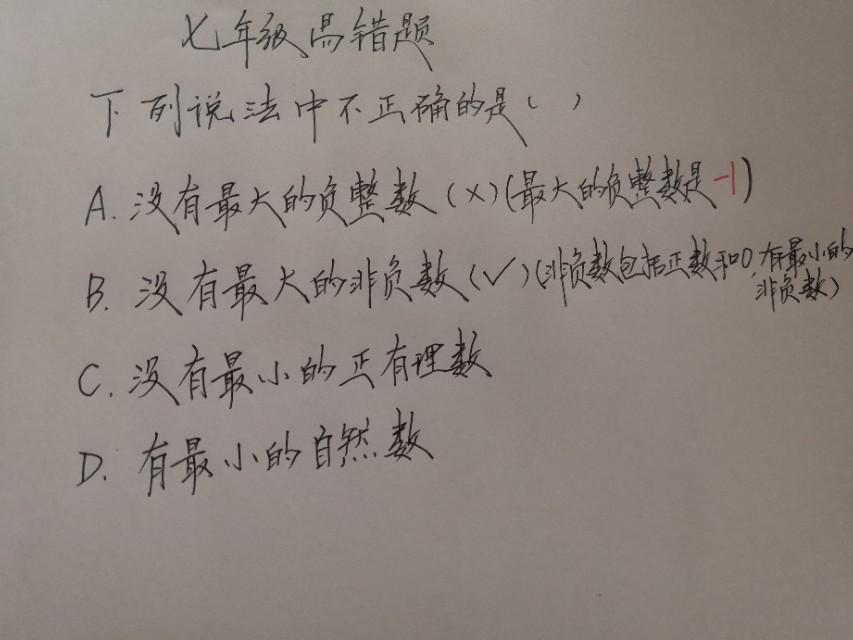 七年级易错题
下列说法中不正确的是( )
A. 没有最大的负整数(×)(最大的负整数是-1)
B. 没有最大的非负数(√)(非负数包括正数和0,有最小的
非负数)
C. 没有最小的正有理数
D. 有最小的自然数